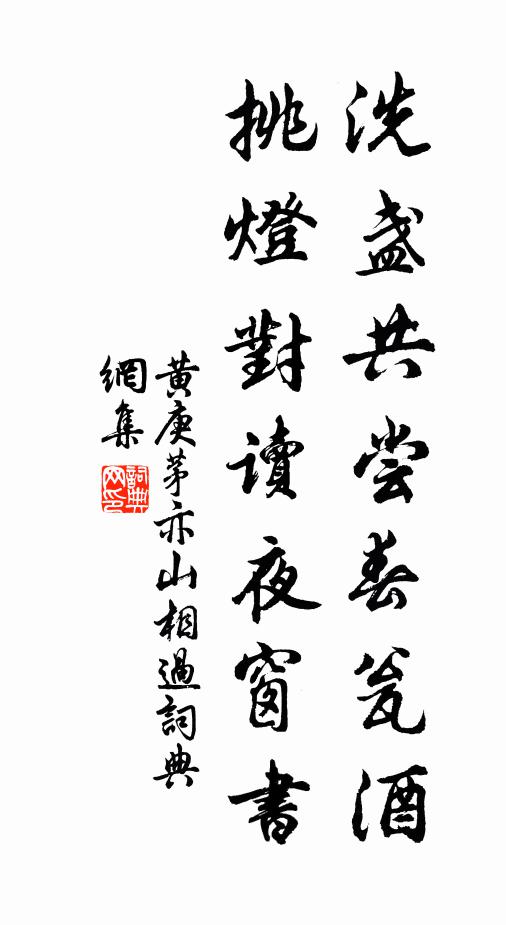 洗盏共尝春瓮酒
挑燈對讀夜窗書
黄庚茅亦山相過詞典
網集
詞典
网印